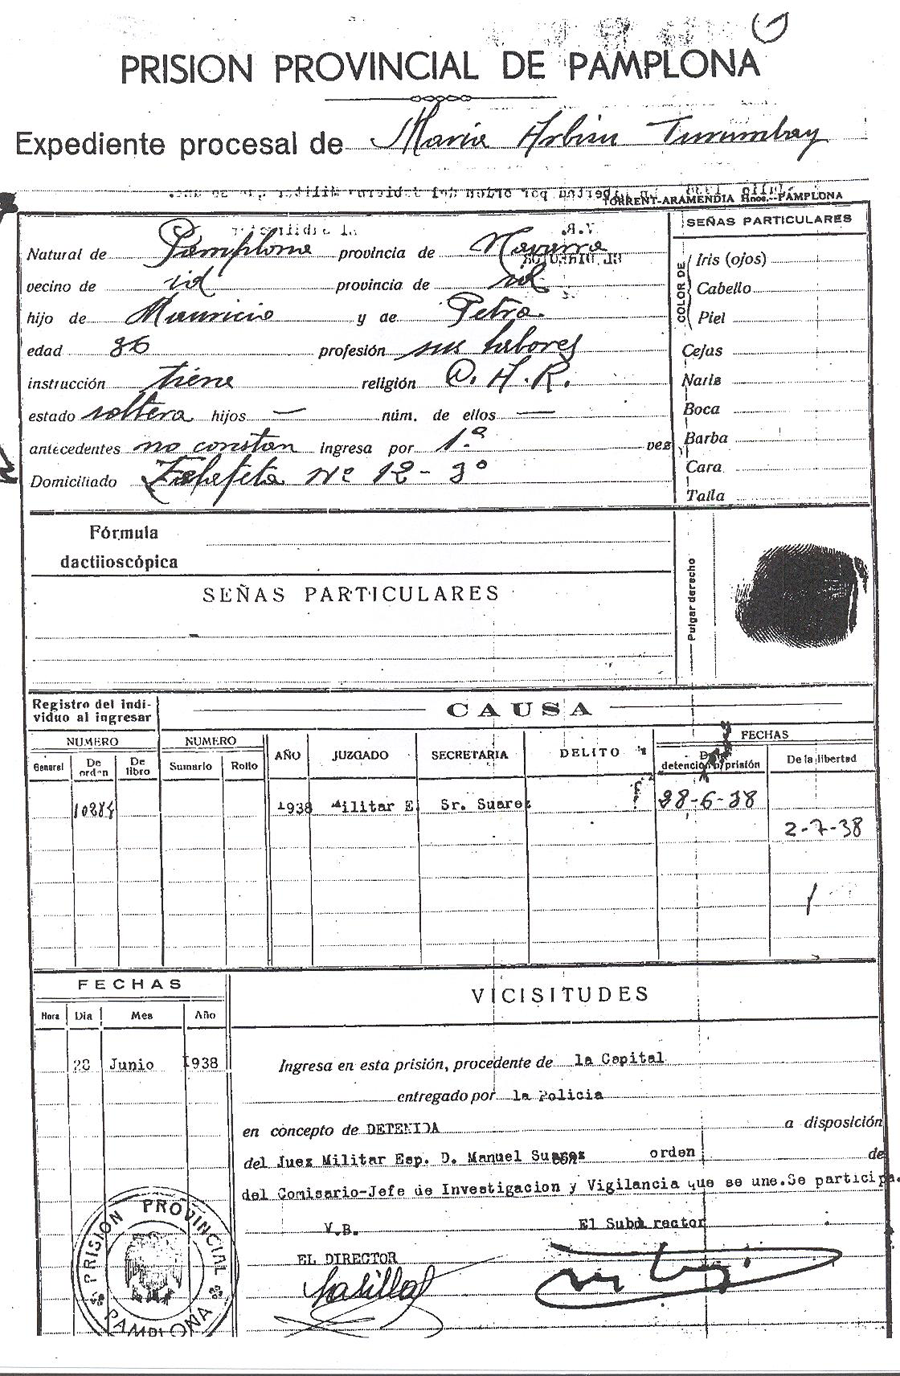 PRISION PROVINCIAL DE PAMPLONA
Expediente procesal de Maria Arbizu Turumbay
TORRENT-ARAMENDIA Hnos.-PAMPLONA
Natural de Pamplona provincia de Navarra
vecino de id provincia de id
hijo de Mauricio y de Petra
edad 36 profesión sus labores
instrucción tiene religión C. A. R.
estado soltera hijos — núm. de ellos —
antecedentes no constan ingresa por 1.ª vez
Domiciliado Nº 12 - 3º
SEÑAS PARTICULARES
COLOR DE
Iris (ojos)
Cabello
Piel
Cejas
Nariz
Boca
Barba
Cara
Talla
Fórmula
dactiloscópica
SEÑAS PARTICULARES
Pulgar derecho
Registro del indi-
viduo al ingresar
CAUSA
NUMERO NUMERO AÑO JUZGADO SECRETARIA DELITO FECHAS
General De orden De libro Sumario Rollo detención prisión De la libertad
1938 Militar E Sr. Suarez 28-6-38
2-7-38
FECHAS
VICISITUDES
Hora Dia Mes Año
28 Junio 1938
Ingresa en esta prisión, procedente de la Capital
entregado por la Policia
en concepto de DETENIDA a disposición
del Juez Militar Esp. D. Manuel Suarez orden de
del Comisario-Jefe de Investigacion y Vigilancia que se une.Se participa.
V.B. El Subdirector
EL DIRECTOR
PRISION PROVINCIAL
PAMPLONA